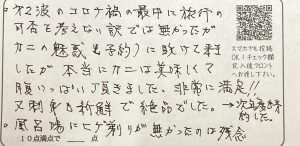 ・第2波のコロナ禍の最中に旅行の
可否を考えない訳では無かったが
カニの魅惑(も予約)に敗けて来ま
したが本当にカニは美味しくて
腹いっぱい頂きました。非常に満足!!
又刺身も新鮮で絶品でした。→次年度を予
約した。
・風呂場にヒゲ剃りが無かったのは残念
10点満点で 点
スマホでも投稿
OK!チェック欄
記入後フロント
へお渡し下さい。